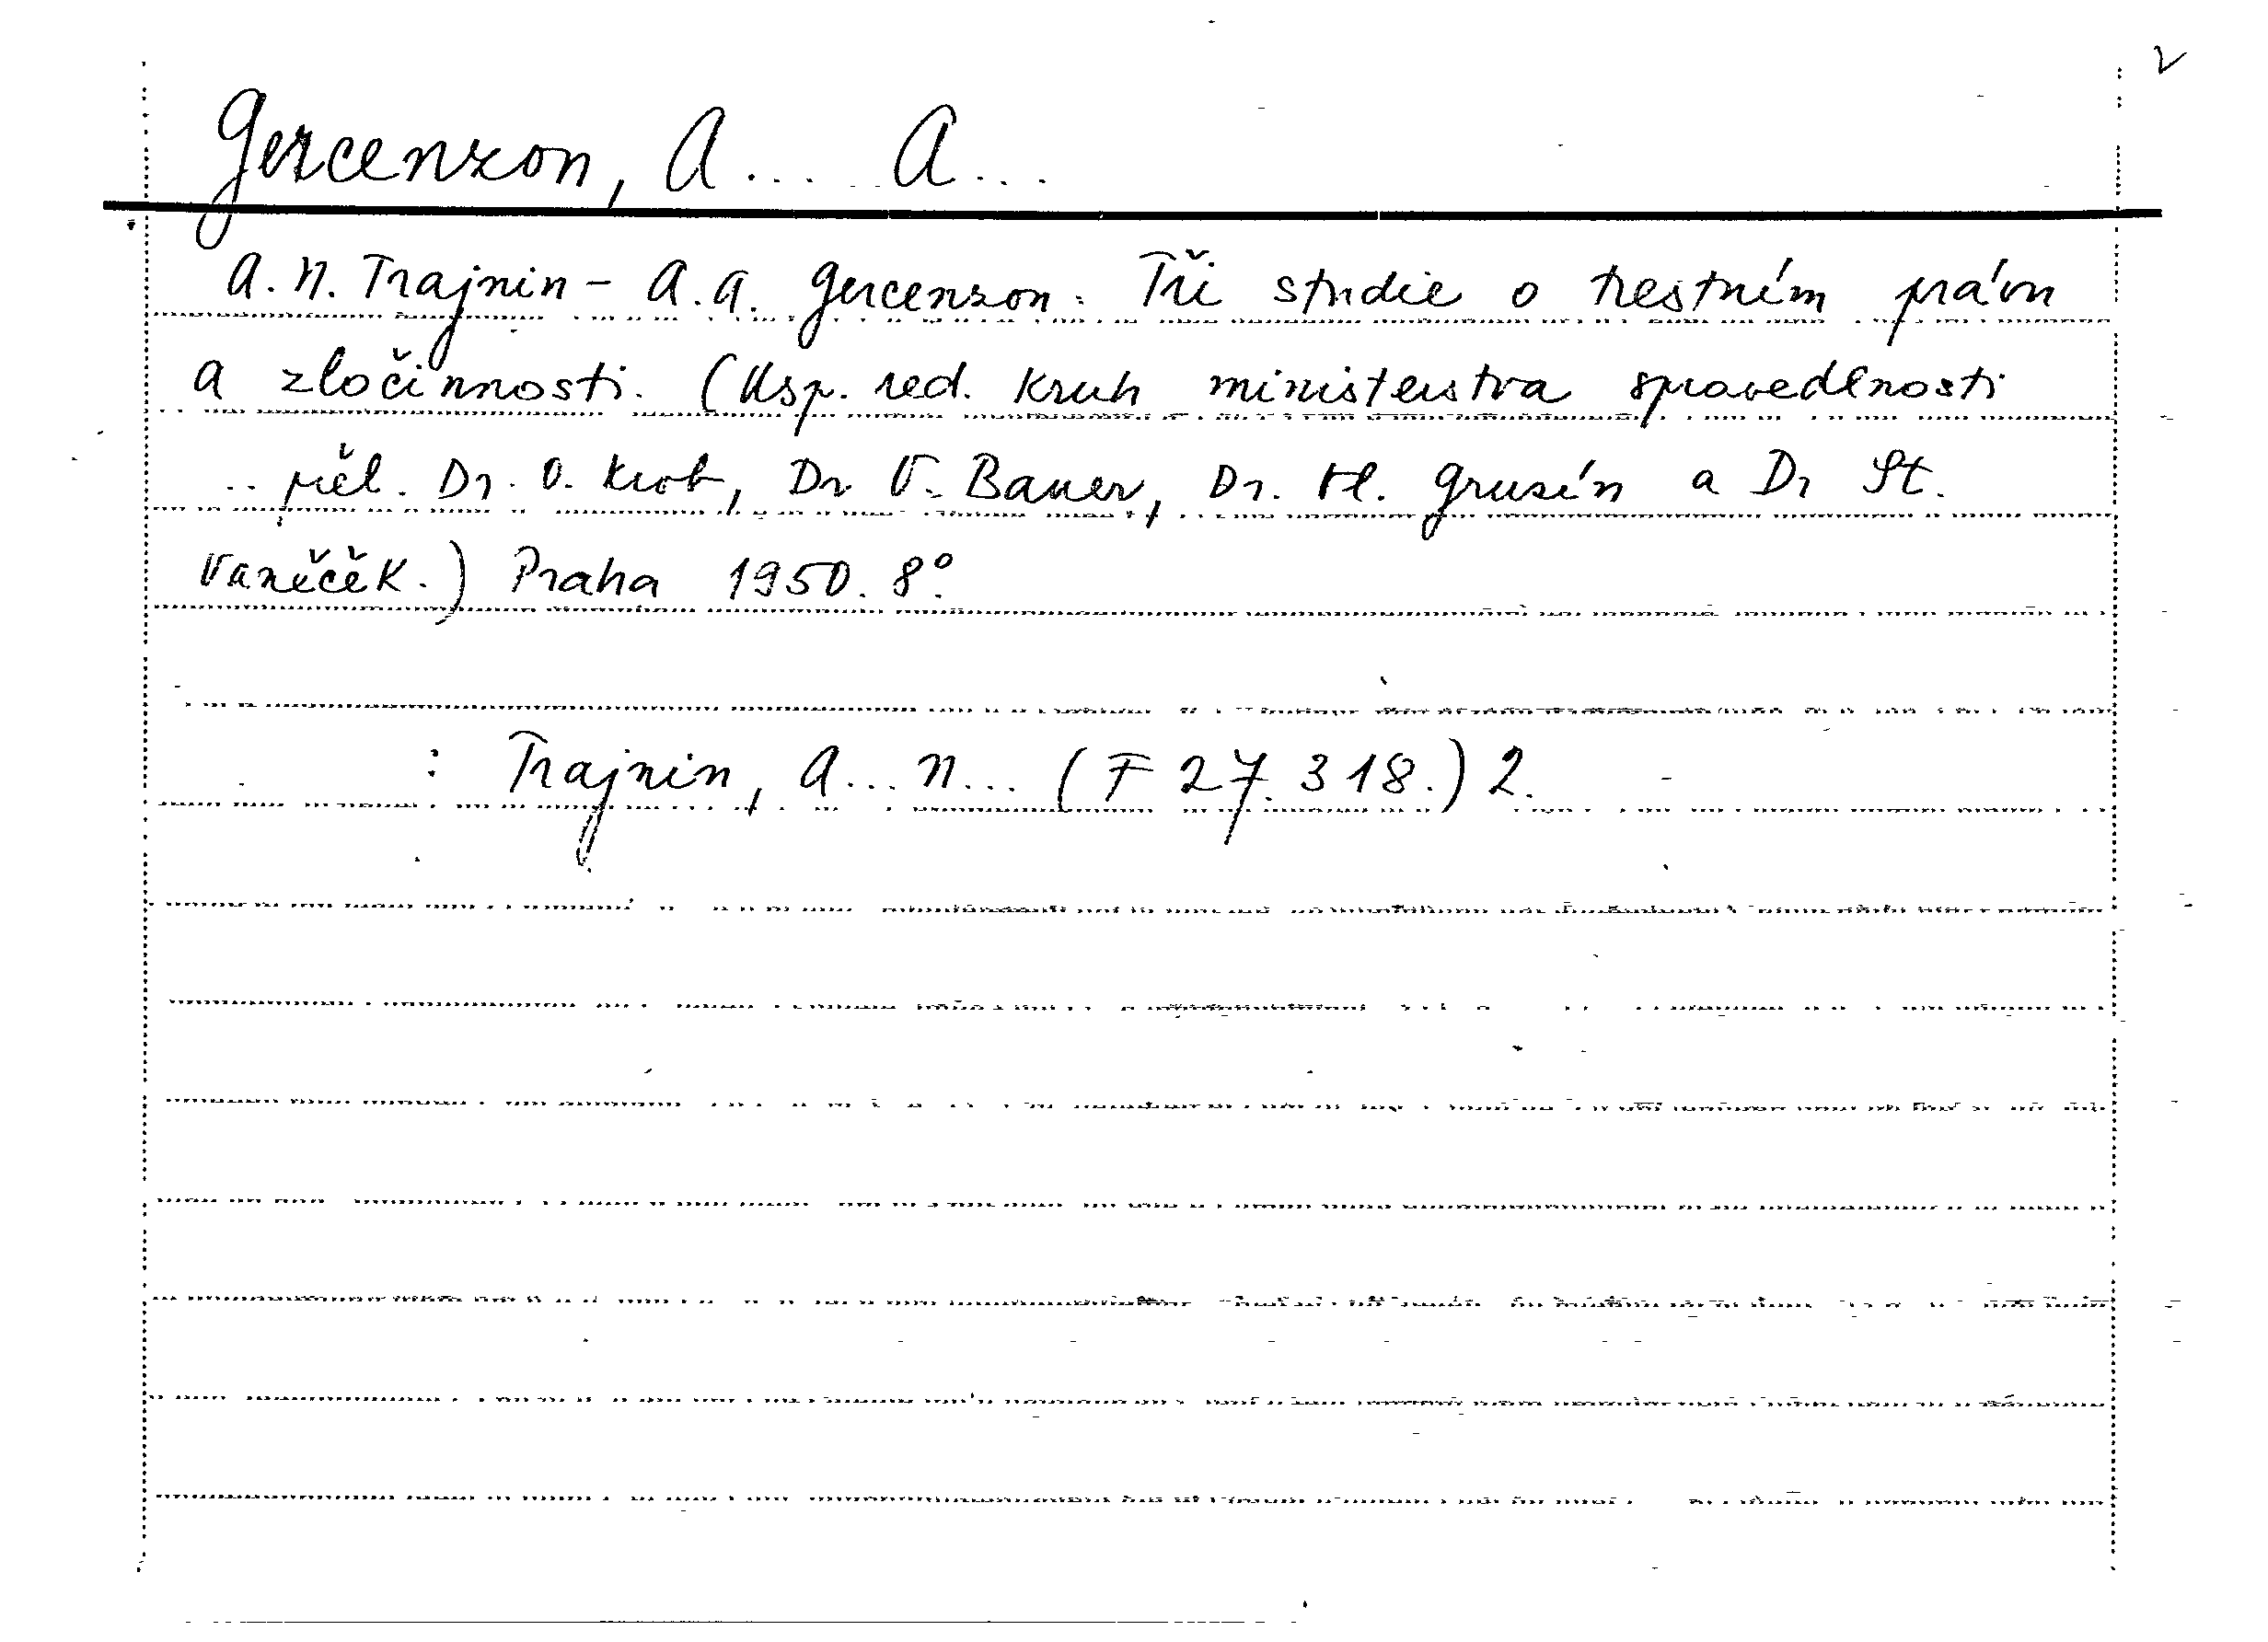 Gercenzon, A... A...
A. N. Trajnin - A. A. Gercenzon: Tři studie o trestním právu
a zločinnosti. (Usp. red. kruh ministerstva spravedlnosti
.. přel. Dr. O. Krob, Dr V. Bauer, Dr. Vl. Grusín a Dr St.
Vaněček.) Praha 1950. 8°.
: Trajnin, A... N... (F 27.318.) 2.